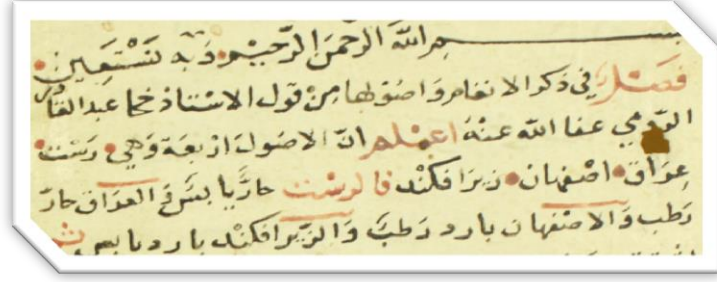 بسم الله الرحمن الرحيم وبه نستعين
فصل في ذكر الانغام واصولها من قول الاستاذ خجا عبد القادر
الرومي عفا الله عنه اعلم ان الاصول اربعة وهي رست
عراق اصفهان زيرافكند فالرست حار يابس والعراق حار
رطب والاصفهان بارد رطب والزيرافكند بارد يابس